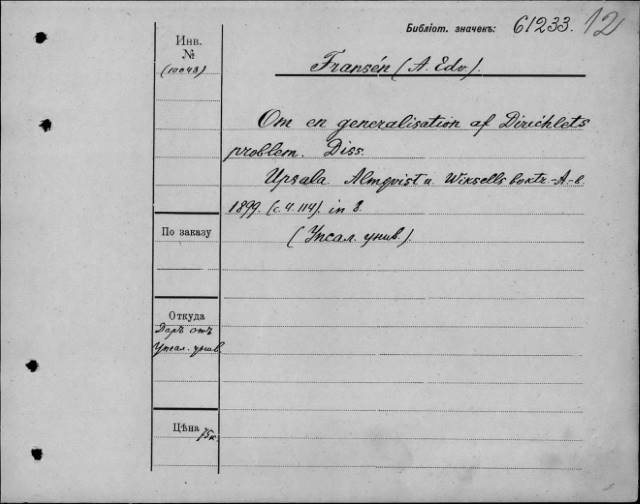 Библіот. значекъ: 61233. 12
Инв.
№
(10043)
Fransén (A. Edv).
Om en generalisation af Dirichlets
problem. Diss.
Upsala. Almqvist u. Wiksells boktr.-A-b.
1899. (c. 4. 114). in 8.
По заказу
(Упсал. унив.).
Откуда
Даръ отъ
Упсал. унив.
Цѣна 75к.